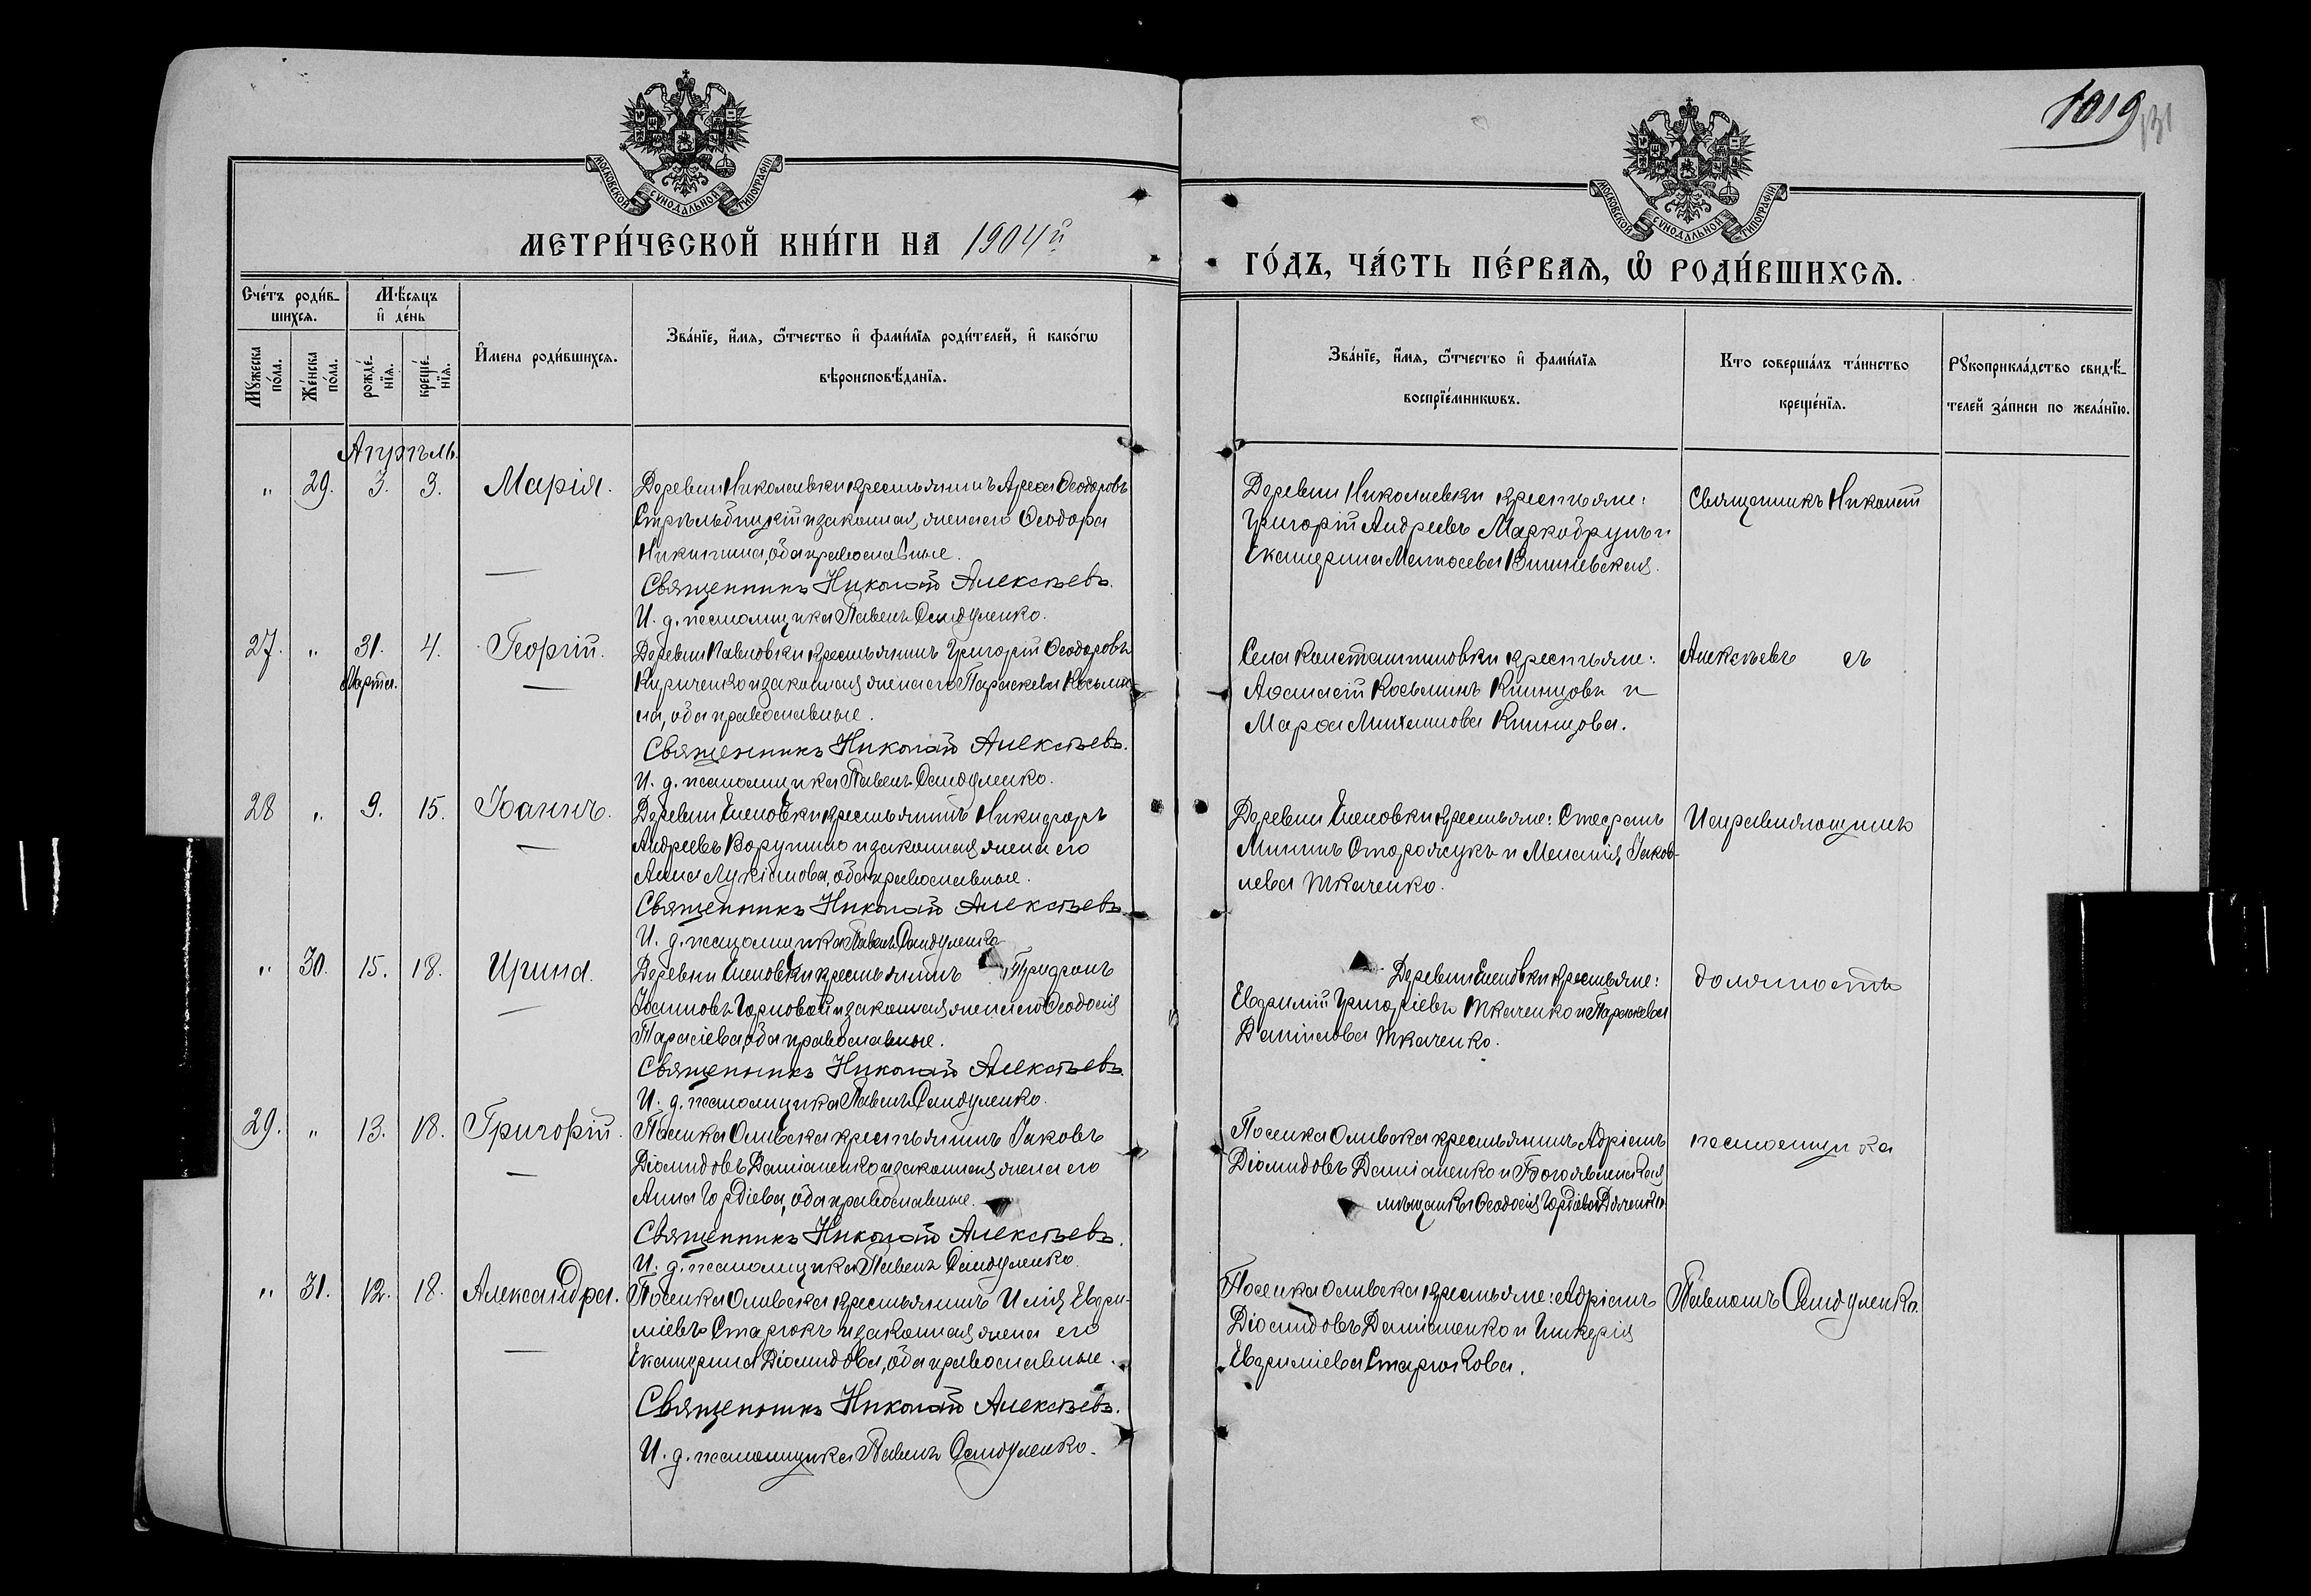 1019
131
МОСКОВСКОЙ СѴНОДАЛЬНОЙ ТИПОГРАФІИ
МОСКОВСКОЙ СѴНОДАЛЬНОЙ ТИПОГРАФІИ
МЕТРИ́ЧЕСКОЙ КНИ́ГИ НА 1904й
ГО́ДЪ, ЧА́СТЬ ПЕ́РВАЯ, Ѡ РОДИ́ВШИХСЯ.
Сче́тъ роди́в-
шихся.
Мѣ́сяцъ
и де́нь
Мꙋ́жеска по́ла.
Же́нска по́ла.
рожде́-
нїя.
креще́-
нїя.
И҆мена роди́вшихся.
Зва́нїе, и҆́мя, ѻ҆́тчество и҆ фами́лїя роди́телей, и҆ како́гѡ
вѣроисповѣ́данїя.
Зва́нїе, и҆́мя, ѻ҆́тчество и҆ фами́лїя
воспрїе́мникѡвъ.
Кто соверша́лъ та́инство
креще́нїя.
Рꙋкоприкла́дство свидѣ́-
телей за́писи по жела́нїю.
Апрѣль.
" 29. 3. 3. Марія.
Деревни Николаевки крестьянинъ Ѳеодоровъ
Стрѣльбицкій и законная жена его Ѳеодора
Никитина, оба православные.
Священникъ Николай Алексѣевъ.
И. д. псаломщика Павелъ Самдуленко.
Деревни Николаевки крестьяне:
Григорій Андреевъ Маркобрунъ и
Екатерина Матѳеева Вишневская.
Священникъ Николай
27. " 31. 4. Георгій.
Марта.
Деревни Павловки крестьянинъ Григорій Ѳеодоровъ
Кириченко и законная жена его Параскева Косьми-
на, оба православные.
Священникъ Николай Алексѣевъ.
И. д. псаломщика Павелъ Самдуленко.
Села Константиновки крестьяне:
Аѳанасій Косьминъ Клинцовъ и
Марѳа Михаилова Клинцова.
Алексѣевъ съ
28 " 9. 15. Іоаннъ.
Деревни Еленовки крестьянинъ Никифоръ
Андреевъ Ворушило и законная жена его
Анна Лукіанова, оба православные.
Священникъ Николай Алексѣевъ.
И. д. псаломщика Павелъ Самдуленко
Деревни Еленовки крестьяне: Стефанъ
Мининъ Старожукъ и Меланія Іаков-
лева Ткаченко.
Исправляющимъ
" 30. 15. 18. Ирина.
Деревни Еленовки крестьянинъ Трифонъ
Іоанновъ Чорновой и законная жена его Ѳеодосія
Тарасіева, оба православные.
Священникъ Николай Алексѣевъ.
И. д. псаломщика Павелъ Самдуленко.
Деревни Еленовки крестьяне:
Евфимій Григоріевъ Ткаченко и Параскева
Даніилова Ткаченко.
должность
29. " 13. 18. Григорій.
Поселка Ольвска крестьянинъ Іаковъ
Діомидовъ Даміаненко и законная жена его
Анна Гордіева, оба православные.
Священникъ Николай Алексѣевъ.
И. д. псаломщика Павелъ Самдуленко.
Поселка Ольвска крестьянинъ Адріанъ
Діомидовъ Даміаненко и Богоявленская
мѣщанка Ѳеодосія Гордіева Дяченко.
псаломщика
" 31. 12. 18. Александра.
Поселка Ольвска крестьянинъ Илія Евфи-
міевъ Старюкъ и законная жена его
Екатерина Діомидова, оба православные.
Священникъ Николай Алексѣевъ.
И. д. псаломщика Павелъ Самдуленко.
Поселка Ольвска крестьяне: Адріанъ
Діомидовъ Даміаненко и Гликерія
Евфиміева Старюкова.
Павломъ Самдуленко.